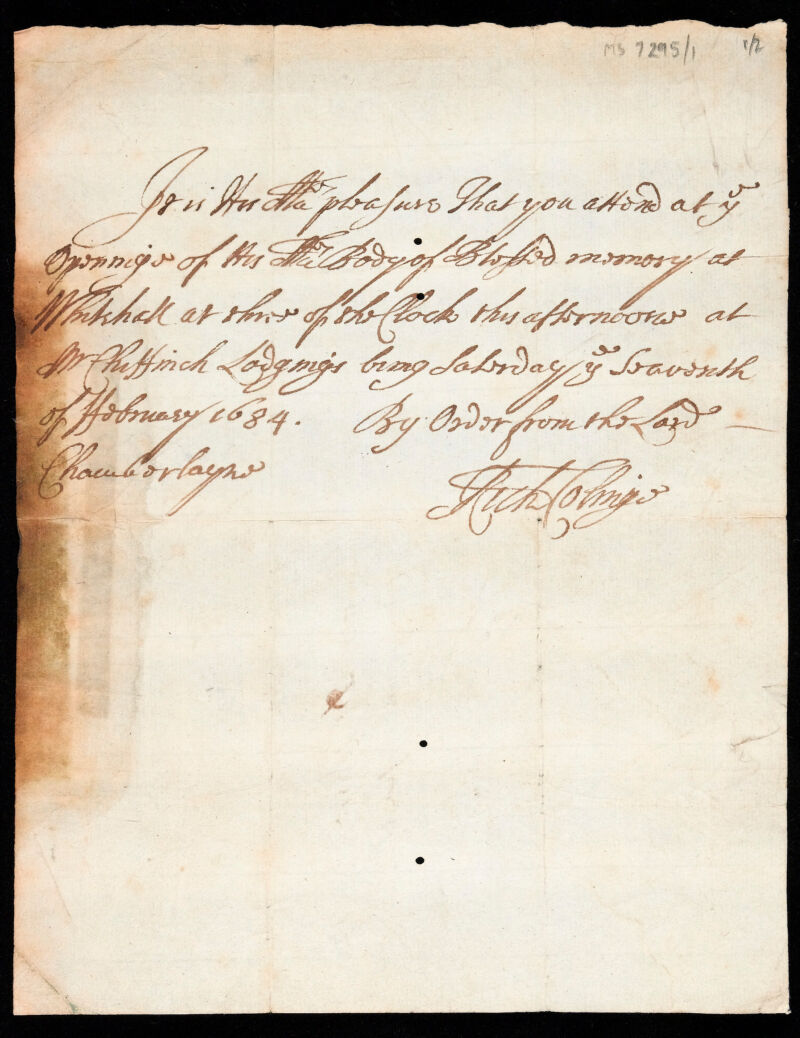 MS 7295/1 1/2
It is His Ma.tie pleasure That you attend at ye
Openinge of His Ma.tie Body of Blessed memory at
Whitehall at three of the Clock this afternoone at
Mr Chiffinch Lodgings being Saterday ye Seaventh
of February 1684. By Order from the Lord
Chamberlayne
Rich Colinge